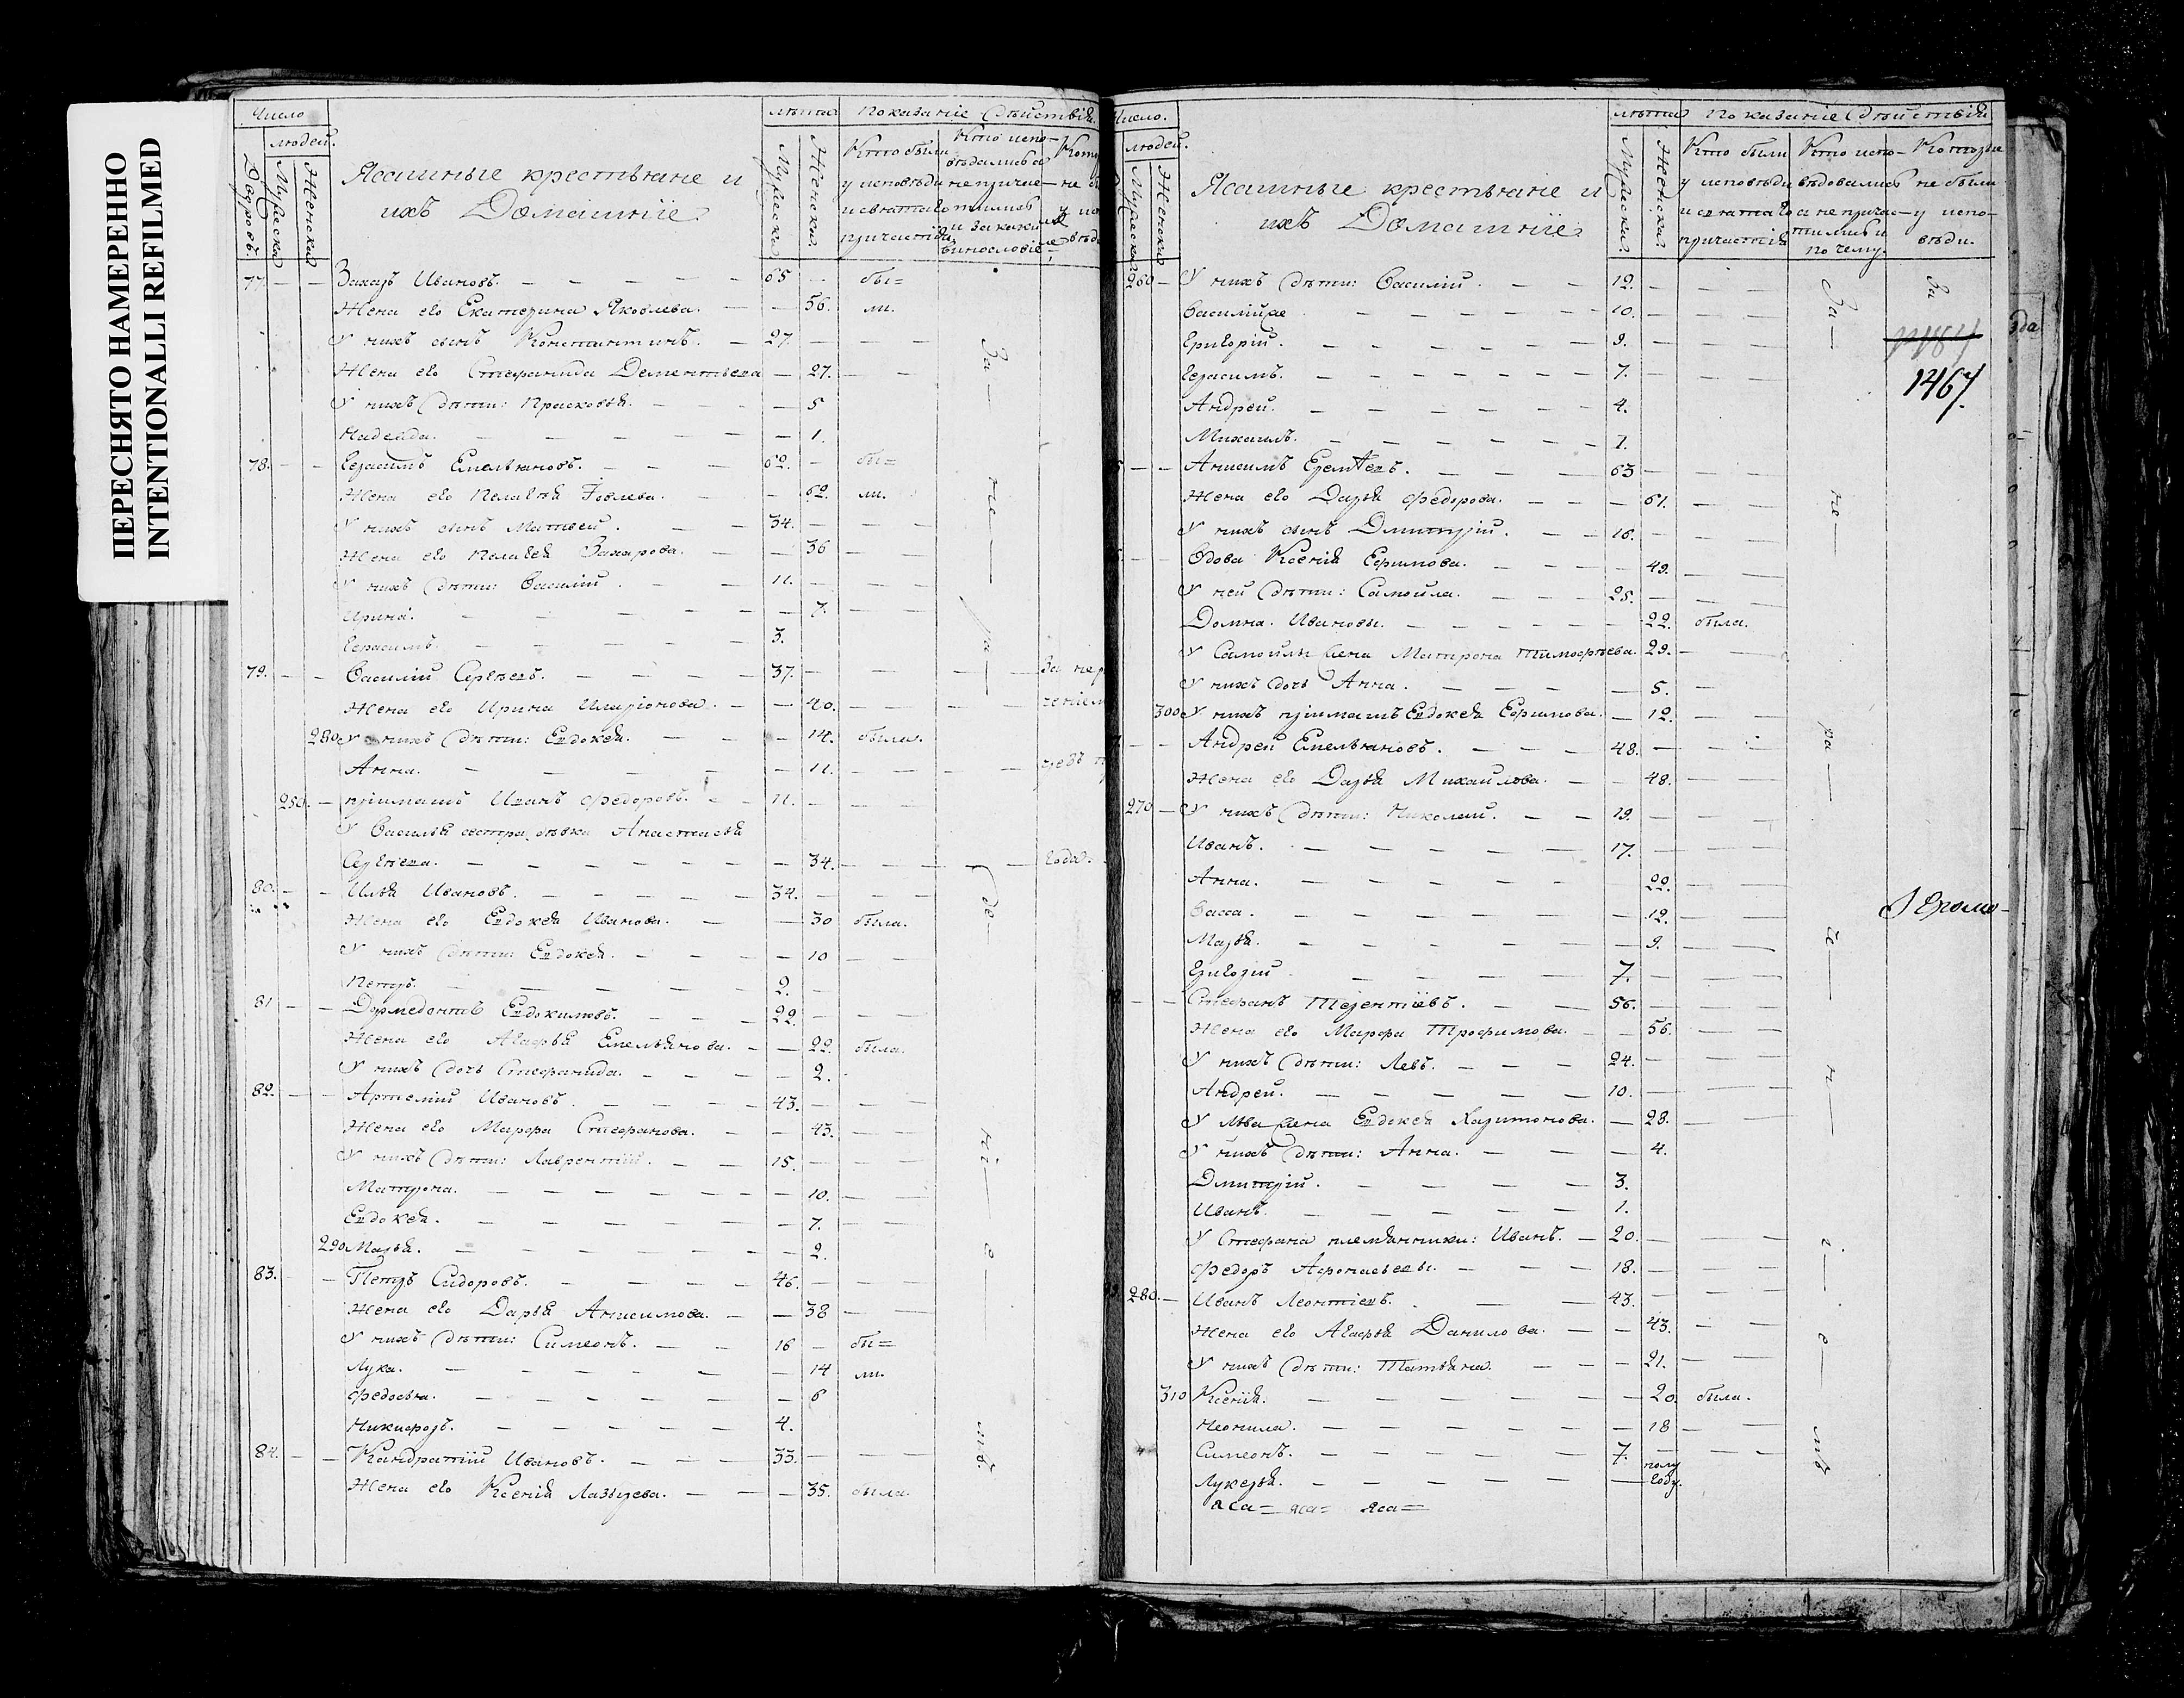 ПЕРЕСНЯТО НАМЕРЕННО
INTENTIONALLI REFILMED
Число
людей.
Дворовъ.
Мужеска
Женска
Ясашные крестьяне и
ихъ Домашніе
лѣта
Мужеска
Женска
Показаніе дѣйствія.
Кто были
у исповѣди
и святаго
причастія
77. Захаръ Ивановъ. 65 бы=
Жена его Екатерина Яковлева. 56. ли.
У нихъ сынъ Константинъ. 27.
Жена его Стефанида Дементьева 27.
У нихъ дѣти: Прасковья. 5
Надежда. 1.
78. Герасимъ Емельяновъ. 62. бы=
Жена его Пелагея Іовлева. 62. ли.
У нихъ сынъ Матвей. 34.
Жена его Пелагея Захарова. 36
У нихъ дѣти: Василій. 11.
Ирина. 7.
Герасимъ. 3.
79. Василій Сергѣевъ. 37.
Жена его Ирина Иларіонова. 40.
280 У нихъ дѣти: Евдокея. 14. была.
Анна. 11.
250. пріимашъ Иванъ Федоровъ. 11.
У Василья сестра дѣвка Анастасья
Сергѣева. 34. года.
80. Илья Ивановъ. 34.
Жена его Евдокея Иванова. 30 была.
У нихъ дѣти: Евдокея. 10
Петръ. 2.
81 Дормедонтъ Евдокимовъ. 22.
Жена его Агафья Емельянова. 22. была.
У нихъ дочь Стефанида. 2.
82. Артемій Ивановъ. 43.
Жена его Марфа Стефанова. 43.
У нихъ дѣти: Лаврентій. 15.
Матрона. 10.
Евдокея. 7.
290 Марья. 2.
83. Петръ Сидоровъ. 46.
Жена его Дарья Анисимова. 38
У нихъ дѣти: Симеонъ. 16 бы=
Лука. 14 ли.
Федосья. 6
Никифоръ. 4.
84. Кандратій Ивановъ. 33.
Жена его Ксенія Лазырева. 35. была.
За — не — ра — де — ні — е — мъ.
Число.
людей.
Мужеска
Женска
Ясашные крестьяне и
ихъ Домашніе
лѣта
Мужеска
Женска
Показаніе дѣйствія
Кто были
у исповѣди
и святаго
причастія
Кто испо-
вѣдовались
а не прича-
стились и
по чему.
Которые
не были
у испо-
вѣди.
За
1467.
260 У нихъ дѣти: Василій. 12.
Василій же 10.
Григорій. 9.
Герасимъ. 7.
Андрей. 4.
Михаилъ. 1.
Анисимъ Еремѣевъ. 63
Жена его Дарья Федорова. 61.
У нихъ сынъ Дмитрій. 16.
Вдова Ксенія Ефимова. 49.
У ней дѣти: Самойла. 25.
Домна. Ивановы. 22. была.
У Самойлы жена Матрона Тимофѣева. 29.
У нихъ дочь Анна. 5.
300 У нихъ пріимашъ Евдокея Ефимова. 12.
Андрей Емельяновъ. 48.
Жена его Дарья Михайлова. 48.
270 У нихъ дѣти: Николай. 19.
Иванъ. 17.
Анна. 22.
Васса. 12.
Марья. 9.
Григорій 7.
Стефанъ Терентіевъ. 56.
Жена его Марфа Трофимова. 56.
У нихъ дѣти: Левъ. 24.
Андрей. 10.
У Льва жена Евдокея Харитонова. 28.
У нихъ дѣти: Анна. 4.
Дмитрій. 3.
Иванъ. 1.
У Стефана племянники: Иванъ. 20.
Федоръ Афонасьевы. 18.
280. Иванъ Леонтіевъ. 43.
Жена его Агафья Данилова. 43.
У нихъ дѣти: Татьяна. 21.
310 Ксенія. 20. была.
Неонила. 18
Симеонъ. 7.
Лукерья. полу году.
яса= яса= яса=
За — не — ра — че — н — і — е — мъ